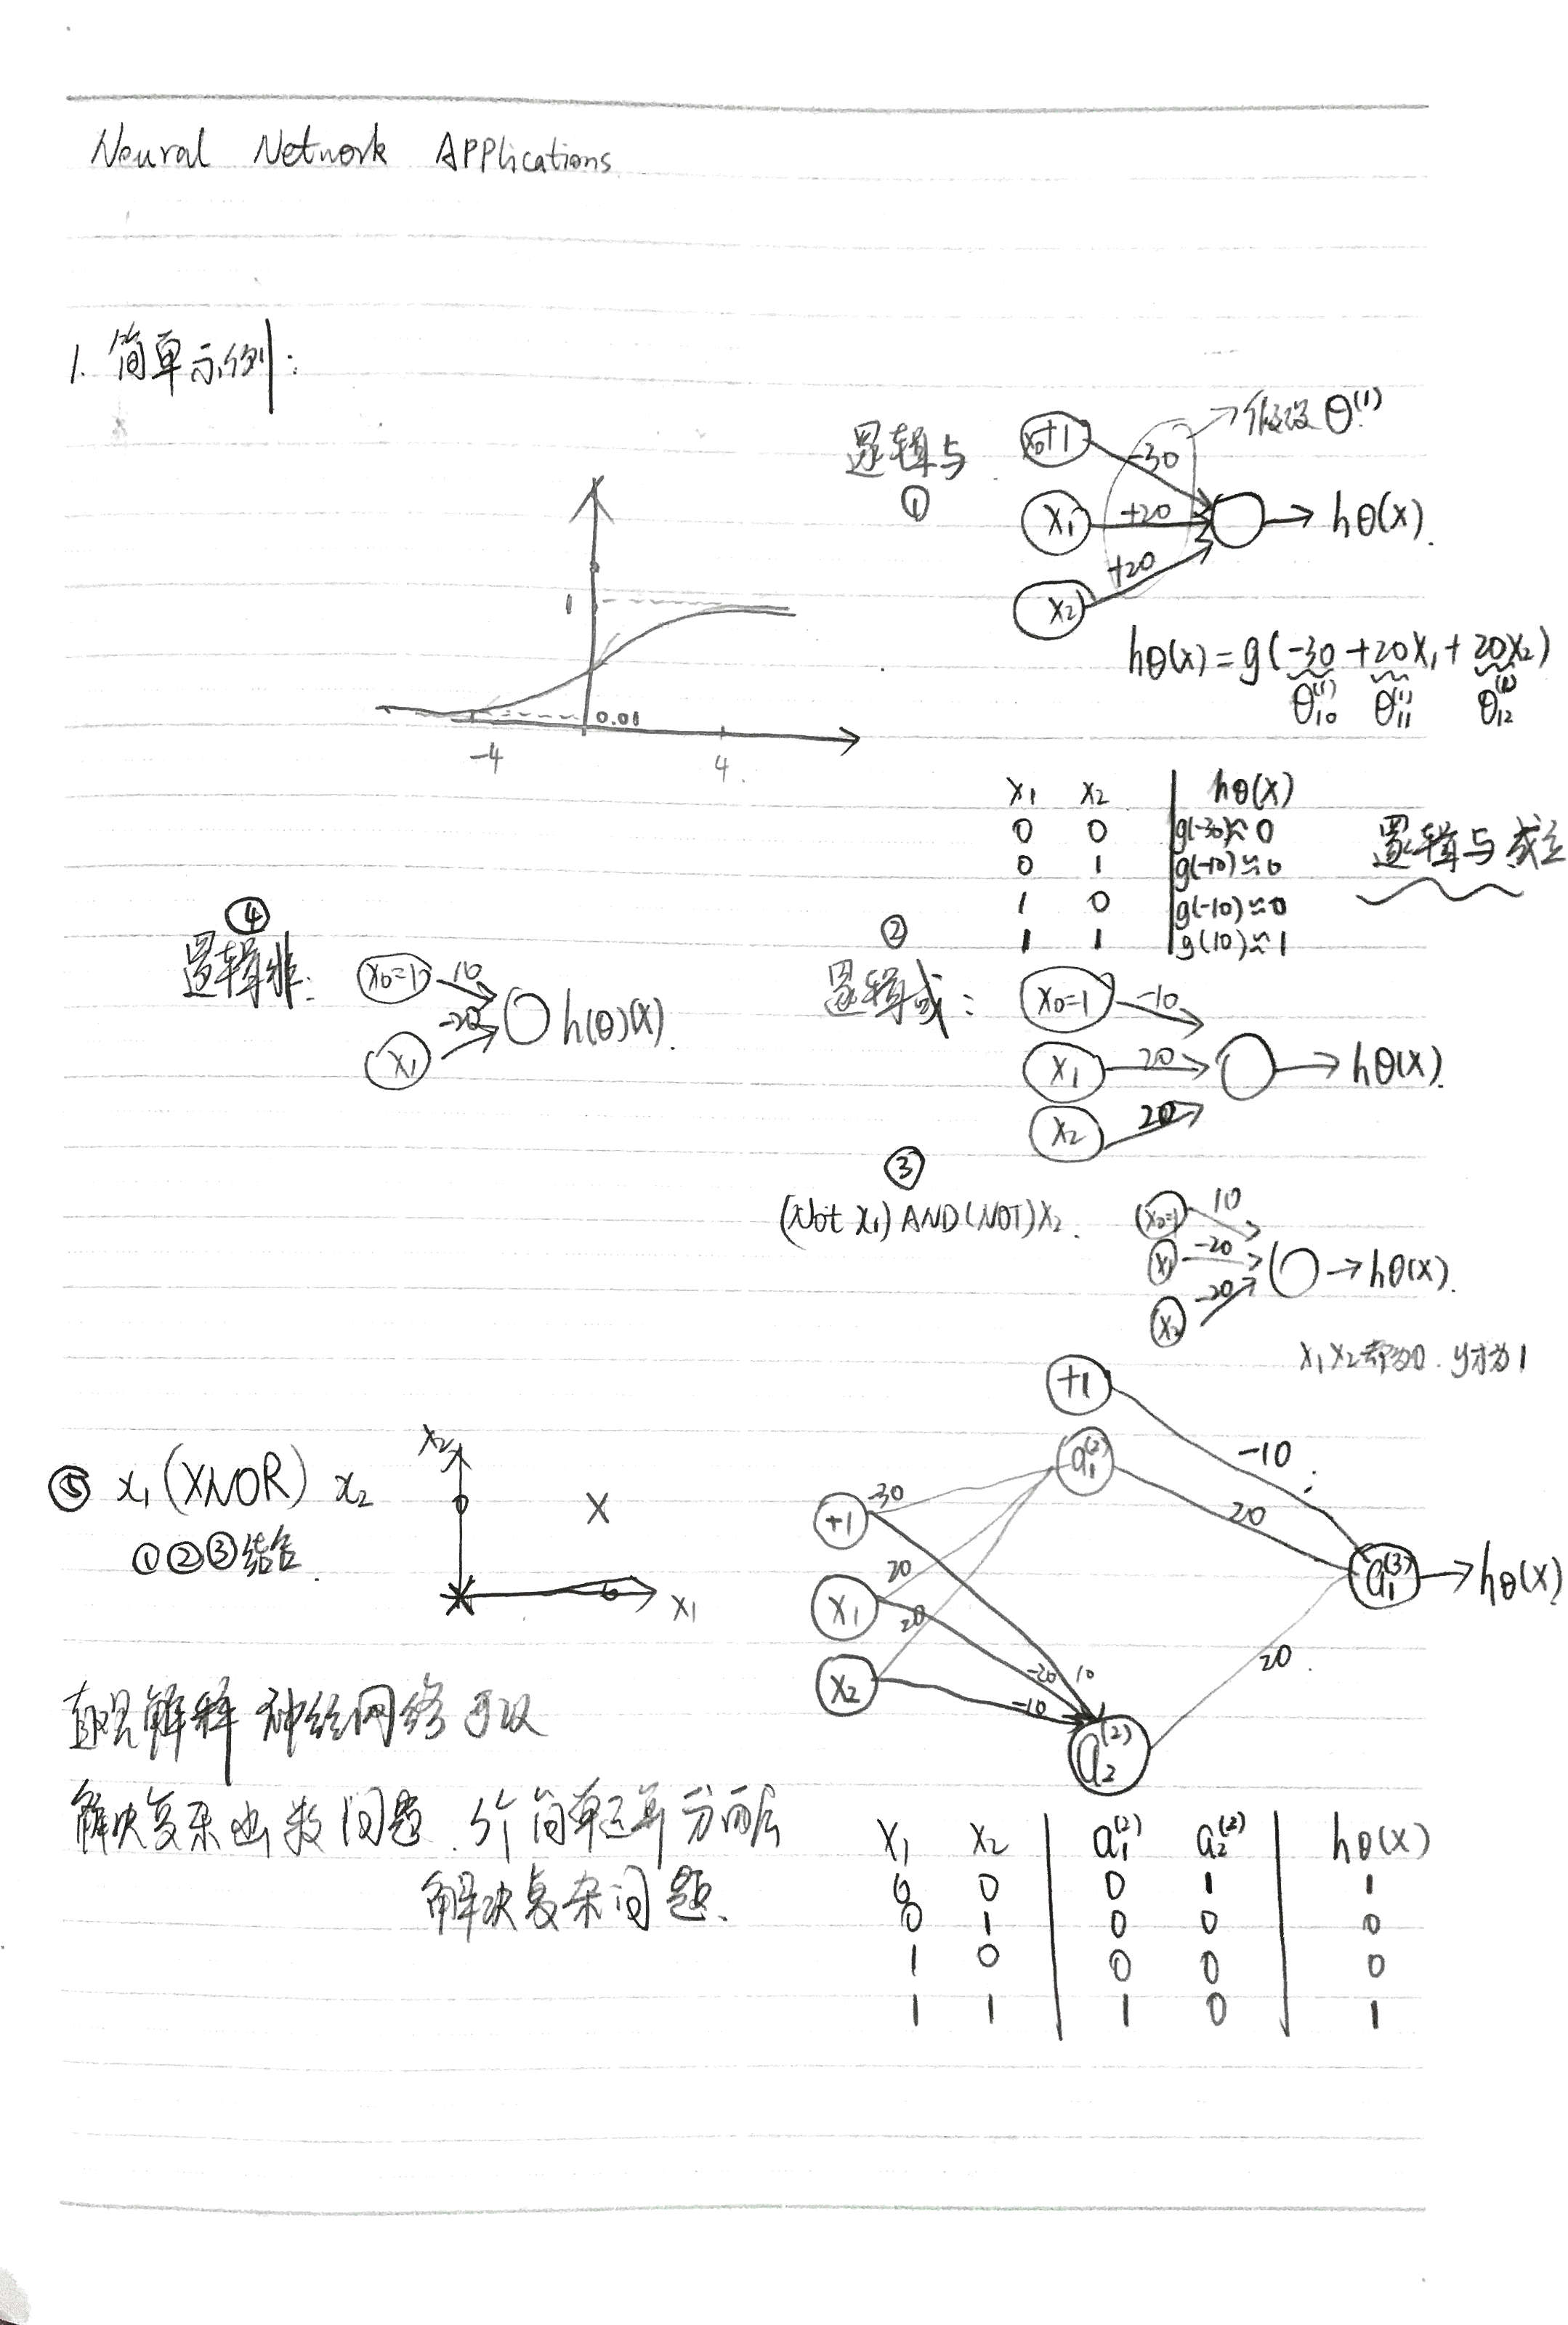 Neural Network Applications
1. 简单示例:
逻辑与
①
x0+1
-30
假设 θ(1)
x1
+20
hθ(x).
x2
+20
1
0.01
-4
4
hθ(x)=g(-30+20x1+20x2)
θ10(1) θ11(1) θ12(1)
x1 x2 hθ(x)
0 0 g(-30)≈0
0 1 g(-10)≈0
1 0 g(-10)≈0
1 1 g(10)≈1
逻辑与成立
④
逻辑非:
x0=1
10
x1
-20
h(θ)(x).
②
逻辑或:
x0=1
-10
x1
20
hθ(x).
x2
20
③
(Not x1) AND (NOT) x2.
x0=1
10
x1
-20
hθ(x).
x2
-20
x1 x2都为0.y才为1
⑤ x1 (XNOR) x2
①②③结合.
x2
x1
+1
a1(2)
-10
20
+1
-30
x1
20
20
x2
-20
10
-10
a2(2)
20.
a1(3)
hθ(x)
直观解释 神经网络可以
解决复杂函数问题.
解决复杂问题.
x1 x2 a1(2) a2(2) hθ(x)
0 0 0 1 1
0 1 0 0 0
1 0 0 0 0
1 1 1 0 1